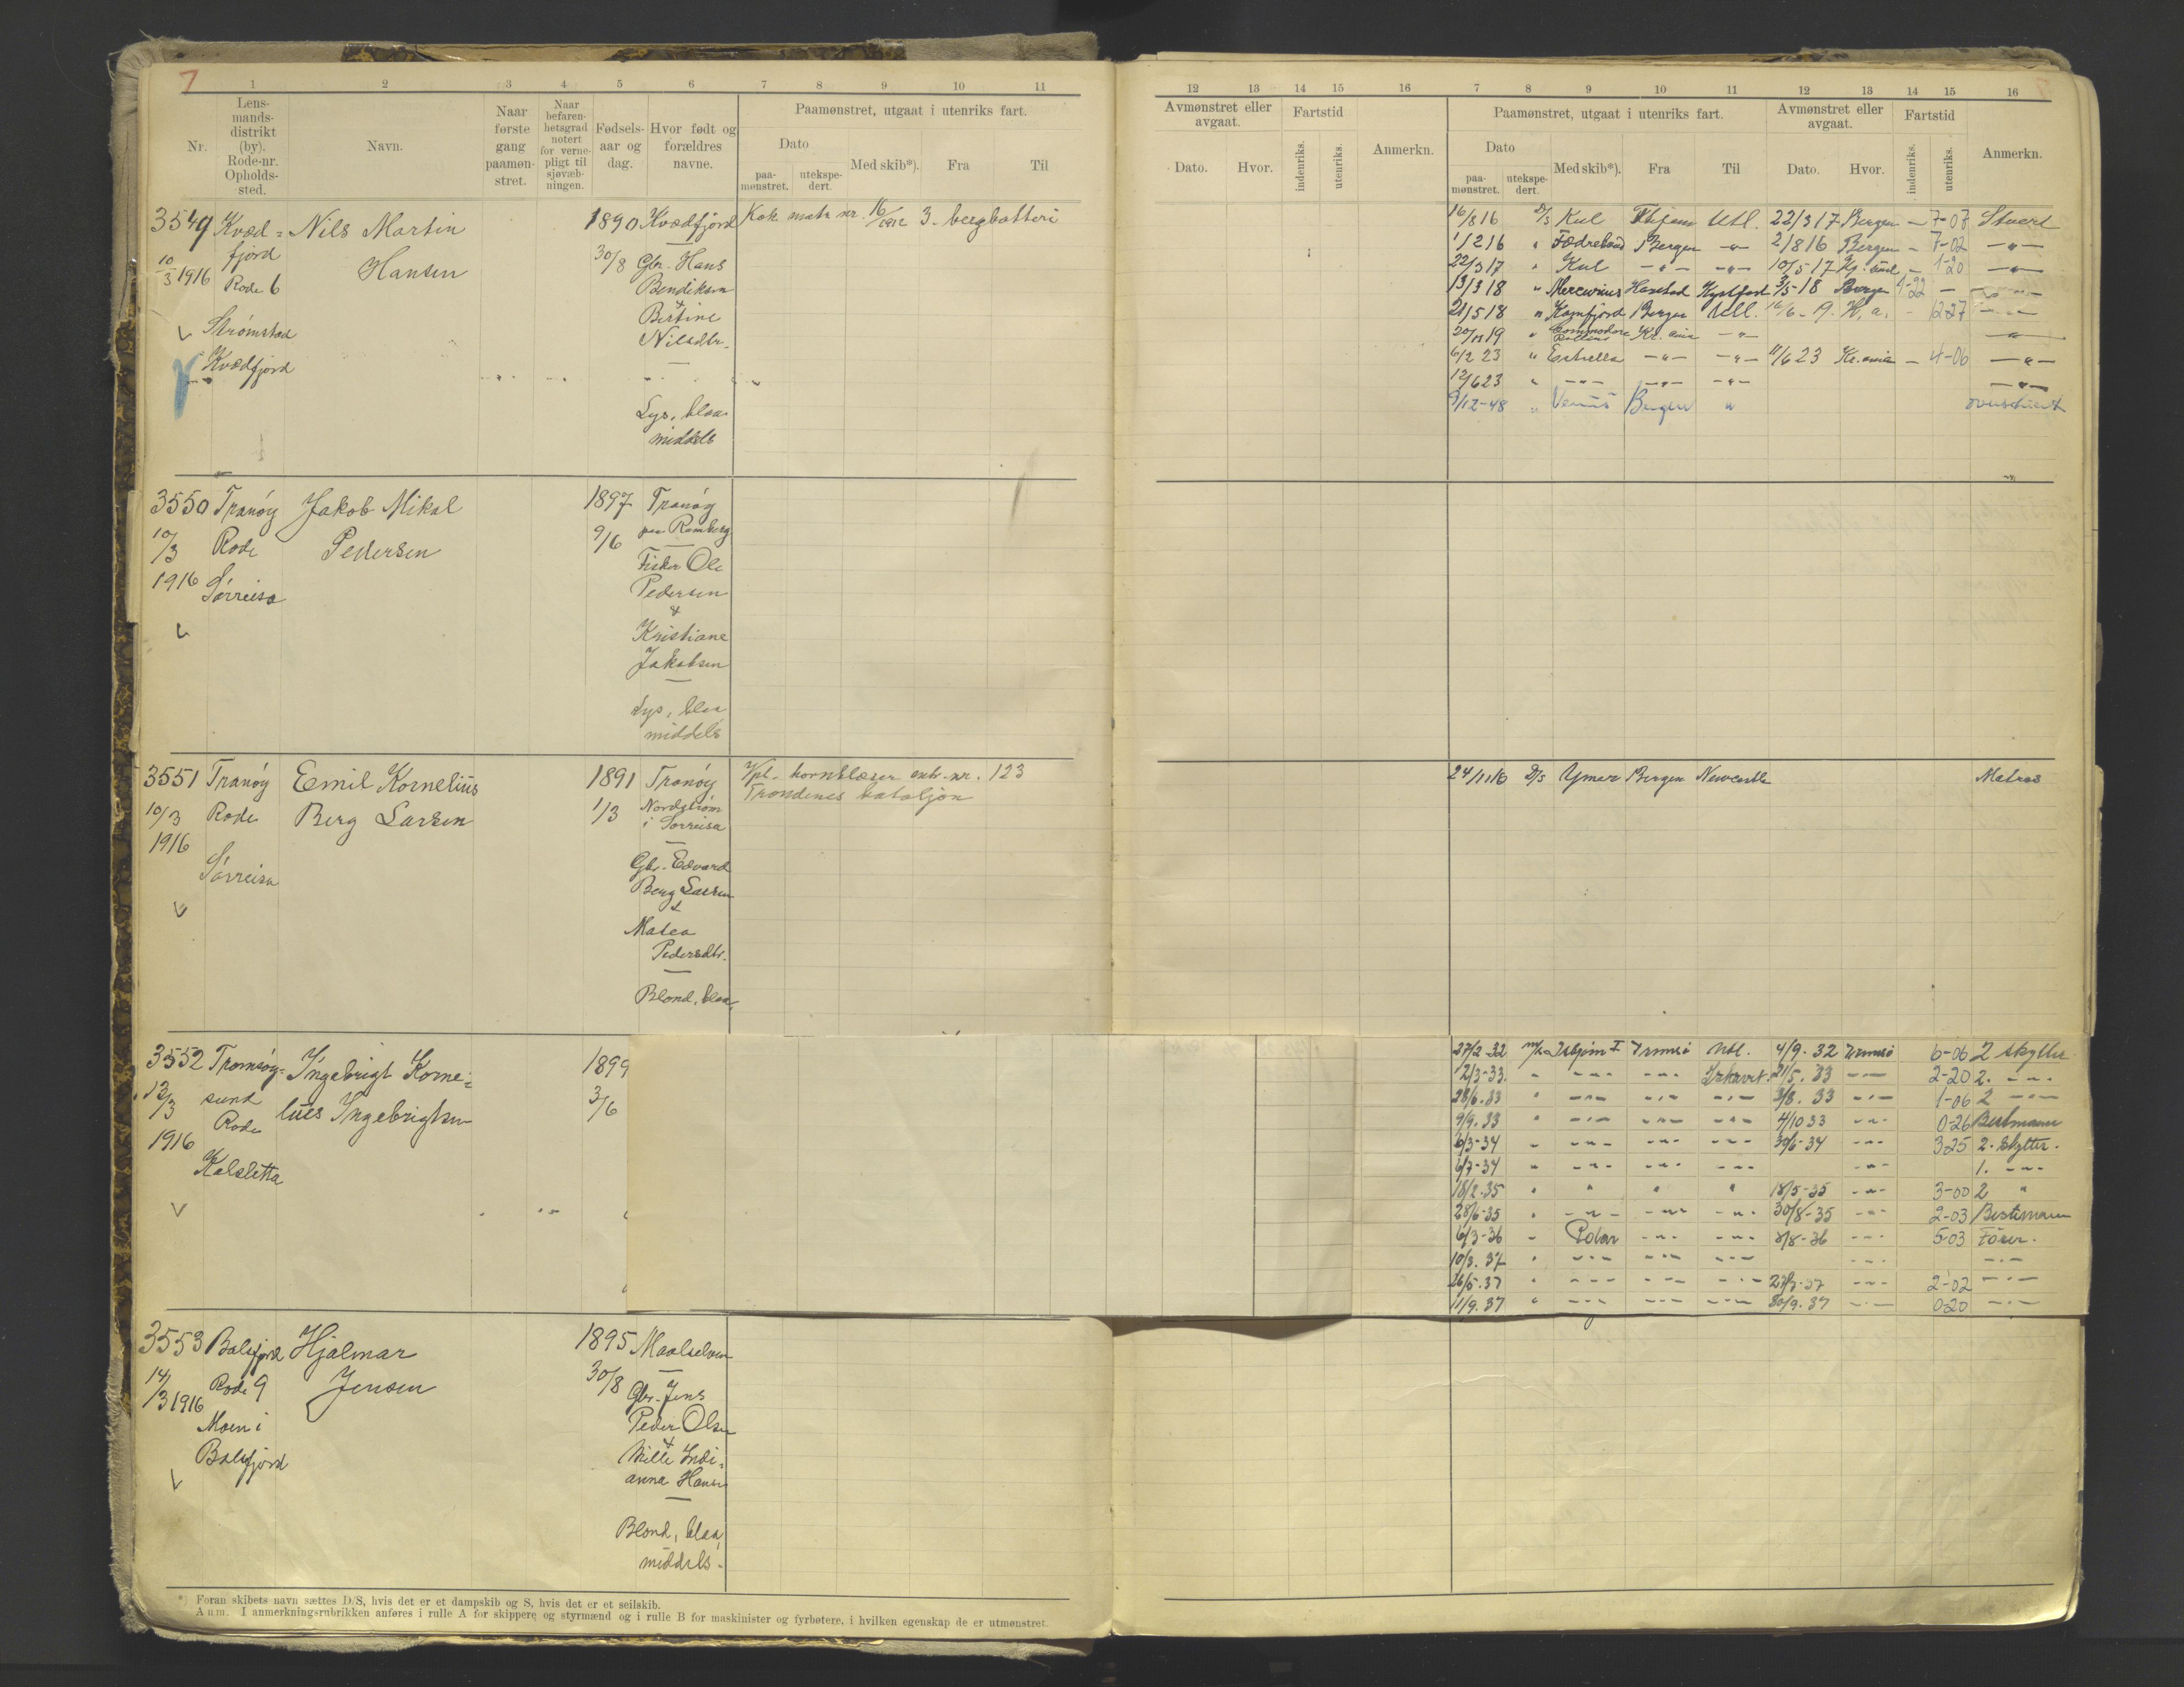 7
1 2 3 4 5 6 7 8 9 10 11
Nr.
Lens-
mands-
distrikt
(by).
Rode-nr.
Opholds-
sted.
Navn.
Naar
første
gang
paamøn-
stret.
Naar
befaren-
hetsgrad
notert
for verne-
pligt til
sjøvæb-
ningen.
Fødsels-
aar og
dag.
Hvor født og
forældres
navne.
Paamønstret, utgaat i utenriks fart.
Dato
paa-
mønstret.
utekspe-
dert.
Med skib*).
Fra
Til
3549 Kvæd=
fjord
10/3 1916 Rode 6
Strømstad
Kvædfjord
Nils Martin
Hansen
1890
30/8
Kvædfjord
Gbr. Hans
Bendiksen
&
Bertine
Nilsdtr.
Lys, blaa
middels
16/1912 3. bergbatteri
3550 Tranöy
10/3 Rode
1916 Sörreisa
Jakob Mikal
Pedersen
1897
9/6
Tranöy
Fisker Ole
Pedersen
&
Kristiane
Jakobsen
Lys, blaa
middels
3551 Tranöy
10/3 Rode
1916
Sörreisa
Emil Kornelius
Berg Larsen
1891
1/3
Tranöy
Nordstrøm
i Sörreisa
Gbr. Edvard
Berg Larsen
&
Matea
Pedersdtr.
Blond, blaa,
Vpl. hornblaser entr. nr. 123
Trondenes bataljon
3552 Tromsöy=
13/3 sund
Rode
1916
Kalsletta
Ingebrigt Korne=
lius Ingebrigtsen
1899
3/6
3553 Balsfjord
14/3 1916 Rode 9
Moen i
Balsfjord
Hjalmar
Jensen
1895
30/8
Maalselven
Gbr. Jens
Peder Olsen
&
Milli Indi=
anna Hansen
Blond, blaa,
middels.
*) Foran skibets navn sættes D/S, hvis det er et dampskib og S, hvis det er et seilskib.
Anm. I anmerkningsrubrikken anføres i rulle A for skippere og styrmænd og i rulle B for maskinister og fyrbøtere, i hvilken egenskap de er utmønstret.
12 13 14 15 16 7 8 9 10 11 12 13 14 15 16
Avmønstret eller
avgaat.
Dato.
Hvor.
Fartstid
indenriks.
utenriks.
Anmerkn.
Paamønstret, utgaat i utenriks fart.
Dato
paa-
mønstret.
utekspe-
dert.
Med skib*).
Fra
Til
Avmønstret eller
avgaat.
Dato.
Hvor.
Fartstid
indenriks.
utenriks.
Anmerkn.
16/8 16 D/S Kul Utl. 22/3 17 Bergen – 7-07 Stuert
1/2 16 " Fædreland Bergen –"– 2/8 16 Bergen – 7-02 –"–
22/3 17 " Kul –"– –"– 10/5 17 – 1-20 –"–
13/3 18 " Mercurius Harstad Kystfart 3/5 18 Bergen 1-22 – –"–
21/5 18 " Kongfjord Bergen Utl. – 12-27 –"–
20/11 19 " Commodore Rollins Kr.ania –"– –"–
6/2 23 " Estrella –"– –"– 11/6 23 Kr.ania – 4-06 –"–
12/6 23 " –"– –"– –"– –"–
9/12-48 " Venus Bergen "
24/11 16 D/S Ymer Bergen Newcastle Matros
27/2 32 m/k Isbjørn I Tromsö Utl. 4/9. 32 Tromsö 6-06 2 skytter.
12/3-33. " –"– –"– Ishavet. 21/5. 33 –"– 2-20 2. –"–
28/6. 33 " –"– –"– –"– 3/8. 33 –"– 1-06 2 –"–
9/9. 33 " –"– –"– –"– 4/10 33 –"– 0-26 Bestmann
6/3-34 " –"– –"– –"– 30/6-34 –"– 3-25 2. skytter.
6/7-34 " –"– –"– –"– –"– 1. –"–
18/2. 35 " " " " 18/5-35 –"– 3-00 2 "
28/6-35 " –"– –"– –"– 30/8-35 –"– 2-03 Bestemann
6/3-36 " Polar –"– –"– 8/8-36 –"– 5-03 Förer.
10/3. 37 " –"– –"– –"– –"– –"–
26/5. 37 " –"– –"– –"– 27/7-37 –"– 2-02 –"–
11/9. 37 " –"– –"– –"– 30/9. 37 –"– 0-20 –"–